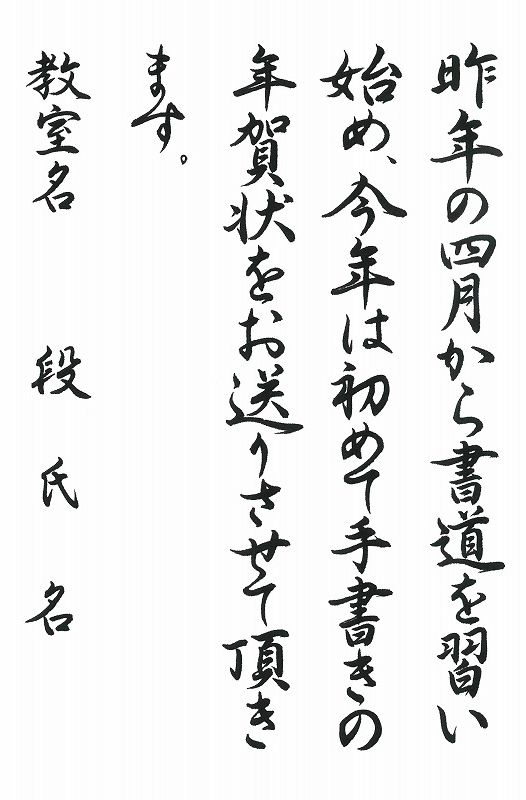 昨年の四月から書道を習い
始め、今年は初めて手書きの
年賀状をお送りさせて頂き
ます。
教室名　段　氏　名